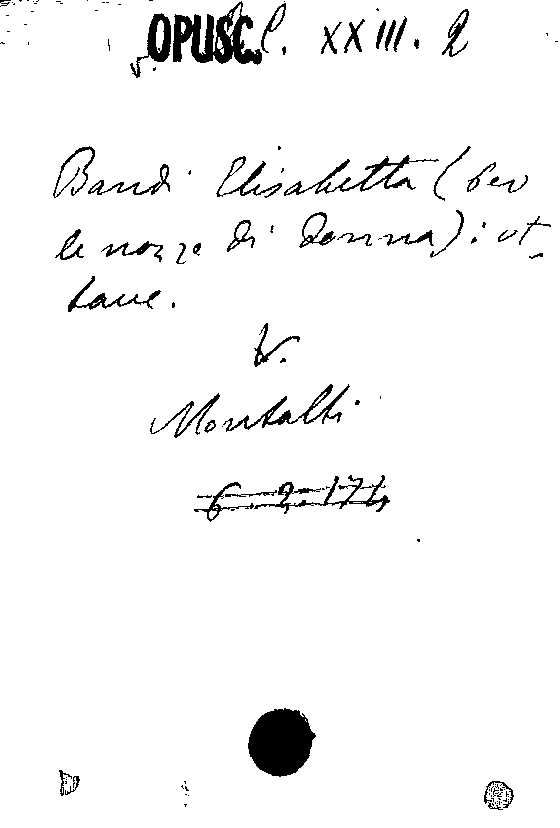 OPUSC. C. XXIII. 2
Bandi Elisabetta (per
le nozze di donna): ot-
tave.
V.
Montalti
6. 2. 171